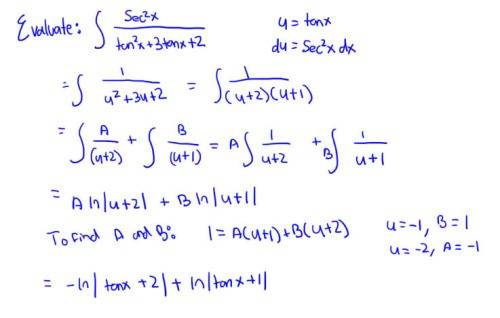 Evaluate: ∫ sec²x / (tan²x+3tanx+2)    u = tanx
du = sec²x dx
= ∫ 1 / (u²+3u+2) = ∫ 1 / ((u+2)(u+1))
= ∫ A/(u+2) + ∫ B/(u+1) = A ∫ 1/(u+2) + B ∫ 1/(u+1)
= A ln|u+2| + B ln|u+1|
To find A and B: 1 = A(u+1)+B(u+2)    u=-1, B=1
u=-2, A=-1
= -ln|tanx+2| + ln|tanx+1|